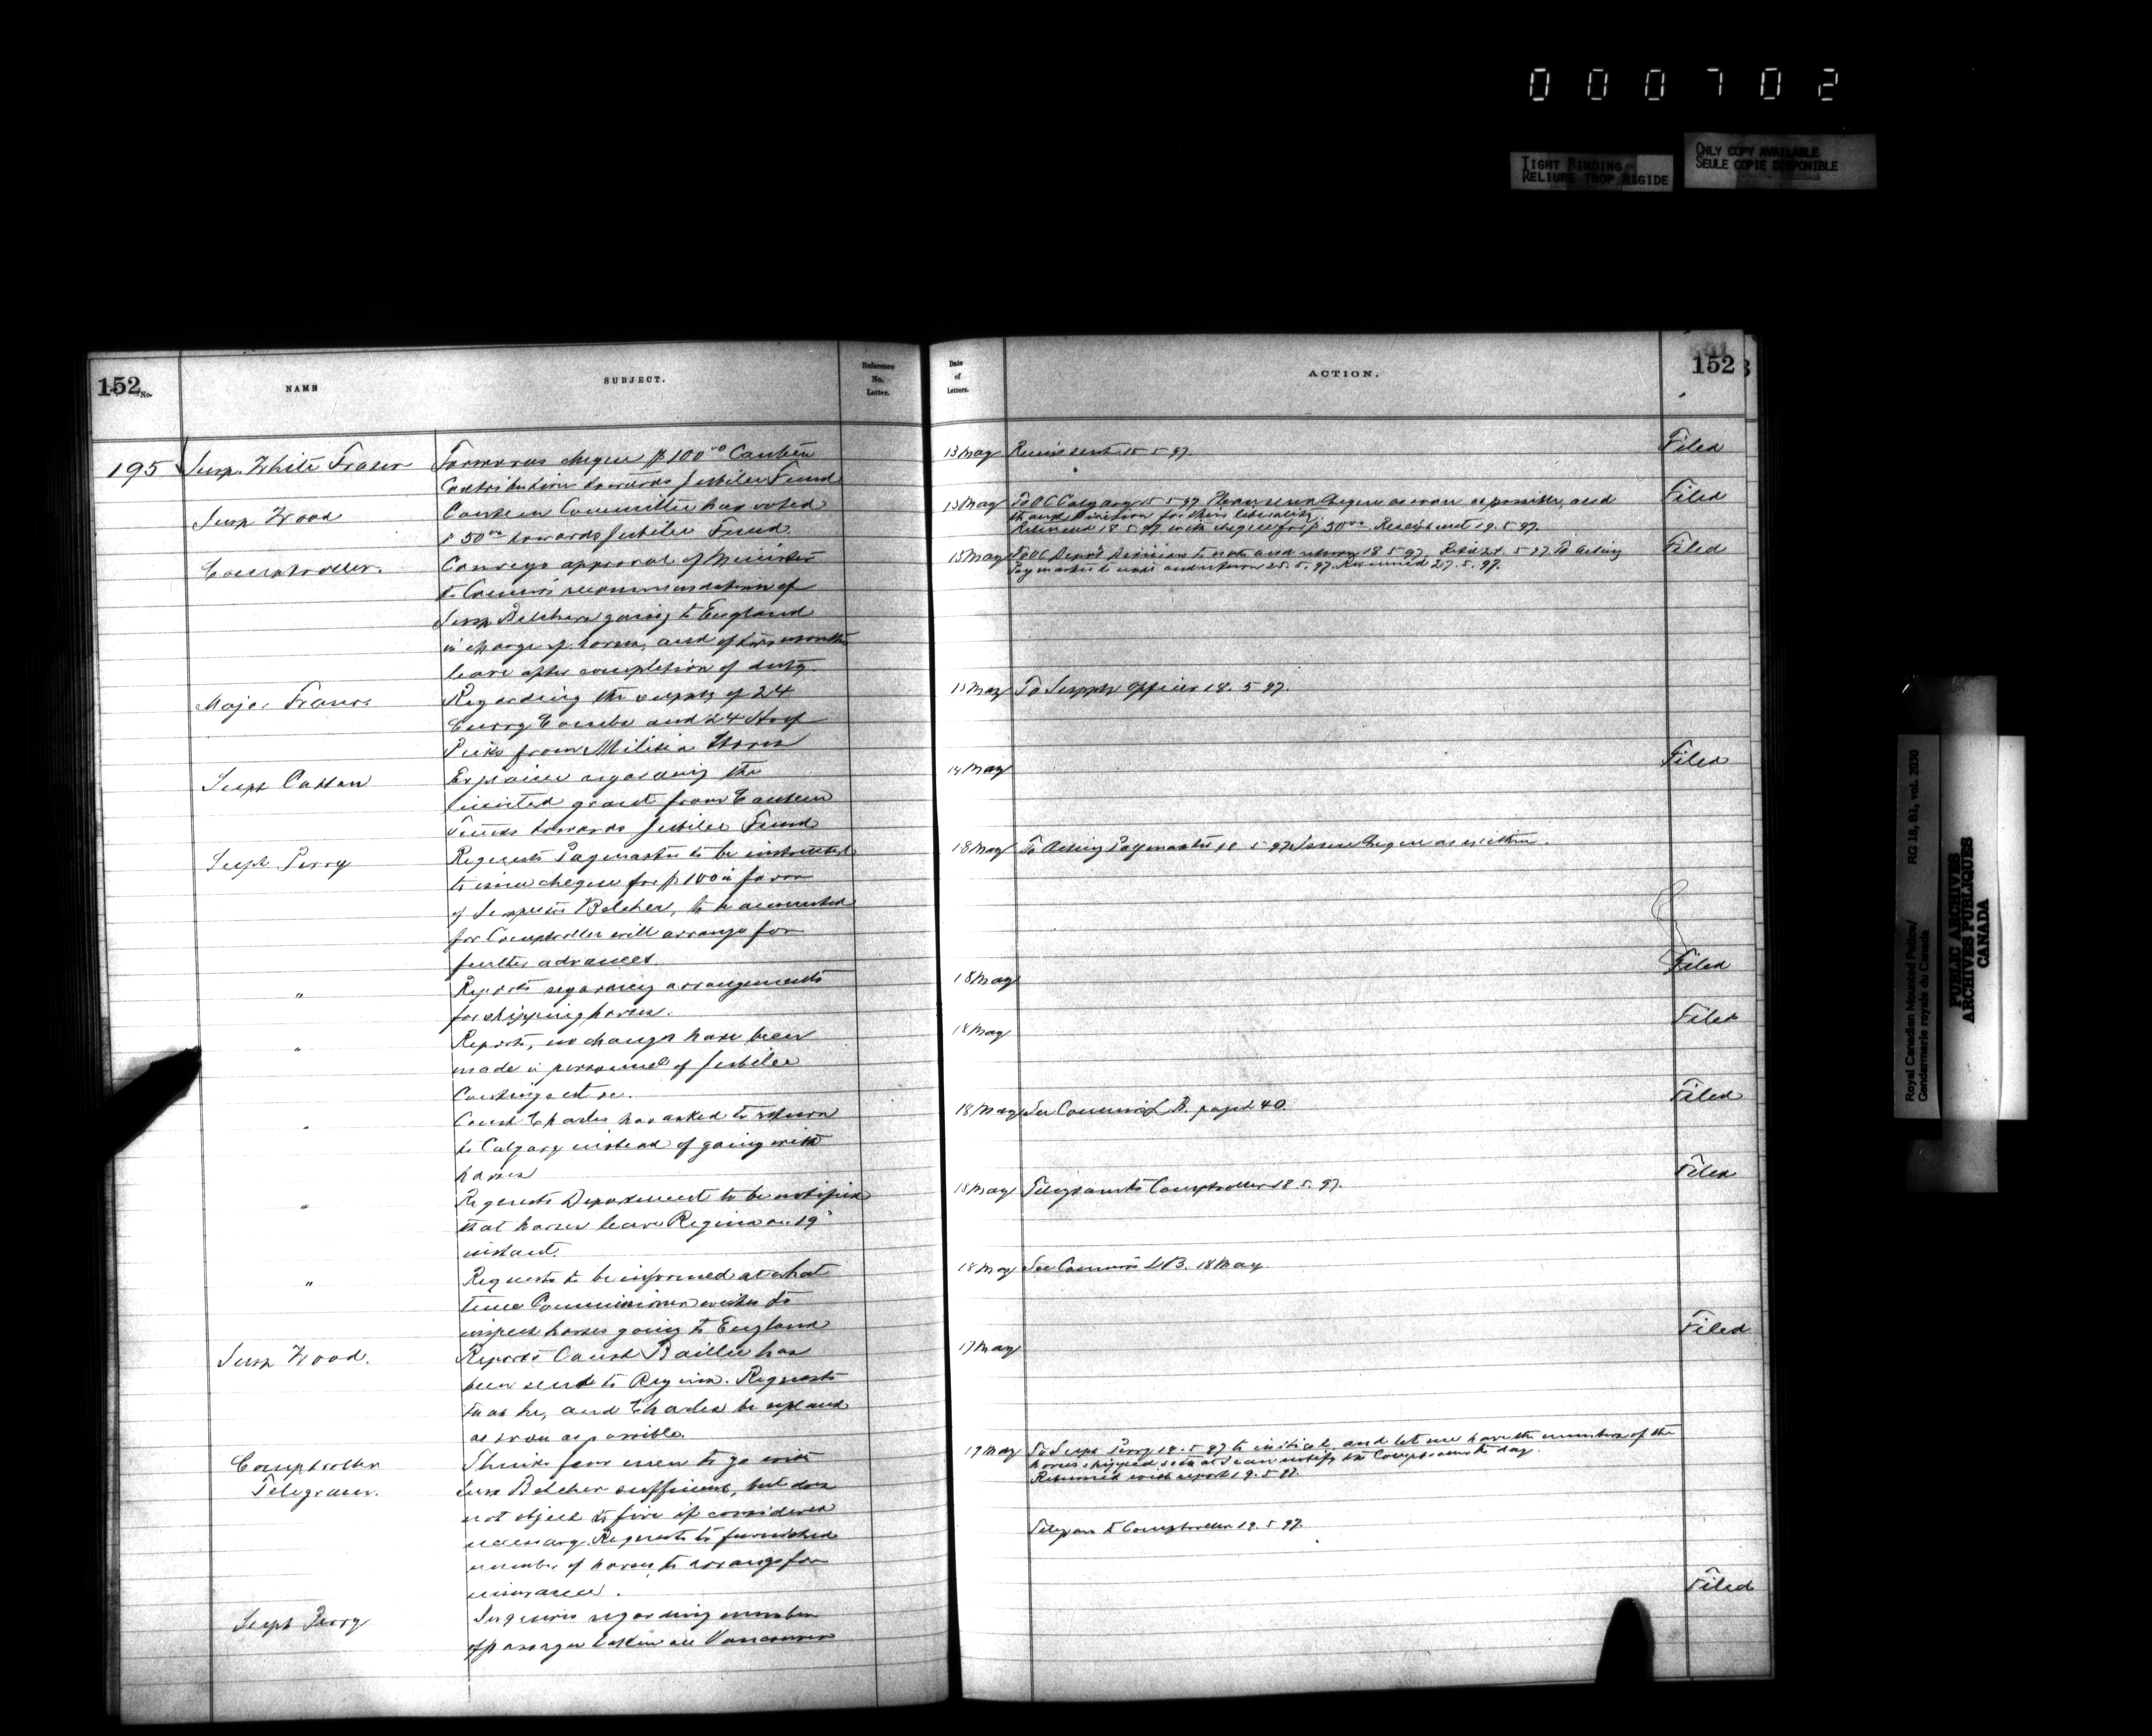 000702
TIGHT BINDING
RELIURE TROP RIGIDE
ONLY COPY AVAILABLE
SEULE COPIE DISPONIBLE
152 No.
NAME
SUBJECT.
Reference
No.
Letter.
195 Insp. White Fraser
Forwards cheque $100.00 Canteen
Contribution towards Jubilee Fund
Insp Wood
Canteen Committee has voted
$50.00 towards Jubilee Fund.
Comptroller.
Conveys approval of Minister
to Commrs recommendation of
Insp Belchers going to England
in charge of horses, and of two months
leave after completion of duty
Major Fraser
Regarding the supply of 24
Curry Combs and 24 Hoof
Picks from Militia Stores
Supt
regarding the
limited grant from Canteen
Funds towards Jubilee Fund
Supt Perry
Requests Paymaster to be instructed
to issue cheque for $100 in favor
of Inspector Belcher, to be accounted
for Comptroller will arrange for
further advances.
"
Reports regarding arrangements
for shipping horses.
"
Reports, no changes have been
made in personnel of Jubilee
Contingent
"
Const Charles has asked to return
to Calgary instead of going with
horses
"
Requests Department to be notified
that horses leave Regina on 19"
instant.
"
Requests to be informed at what
time Commissioner wishes to
inspect horses going to England
Insp Wood.
Reports Const Baillie has
been sent to Regina. Requests
he, and Charles be
as soon as possible.
Comptroller
Telegram.
Thinks four men to go with
Insp Belcher sufficient, but does
not object to five if considered
necessary. Requests to furnished
number of horses to arrange for
insurance.
Supt Perry
Inquires regarding number
of
Date
of
Letters.
ACTION.
152
13 May Receipt sent 15.5.97.
Filed
13 May To OC Calgary 15.5.97 Please send cheque as soon as possible, and
thank Division for their liberality.
Returned 18.5.97 with cheque for $50.00 Receipt sent 19.5.97.
Filed
15 May To OC Depot Division to note and return 18.5.97. To Acting
Paymaster to note and return 25.5.97. Returned 27.5.97.
Filed
13 May To Supply Officer 18.5.97.
14 May
Filed
18 May To Acting Paymaster 18.5.97 Issue cheque as within.
18 May
Filed
18 May
Filed
18 May See Commrs L.B. page 240.
Filed
18 May Telegram to Comptroller 18.5.97.
Filed
18 May See Commrs LB. 18 May
17 May
Filed
17 May To Supt Perry 18.5.97 to initial, and let me have the number of the
horses shipped so that I can notify the Comptroller to day.
Returned with report 19.5.97
Telegram to Comptroller 19.5.97
Filed
Royal Canadian Mounted Police/
Gendarmerie royale du Canada
RG 18, B1, vol. 2030
PUBLIC ARCHIVES
ARCHIVES PUBLIQUES
CANADA